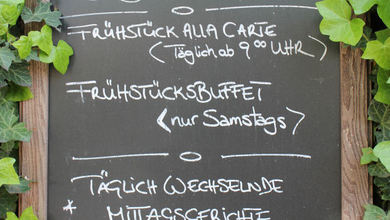 FRÜHSTÜCK ALLA CARTE
(Täglich ab 9⁰⁰ UHR)
FRÜHSTÜCKSBUFFET
<nur Samstags>
TÄGLICH WECHSELNDE
* MITTAGSGERICHTE